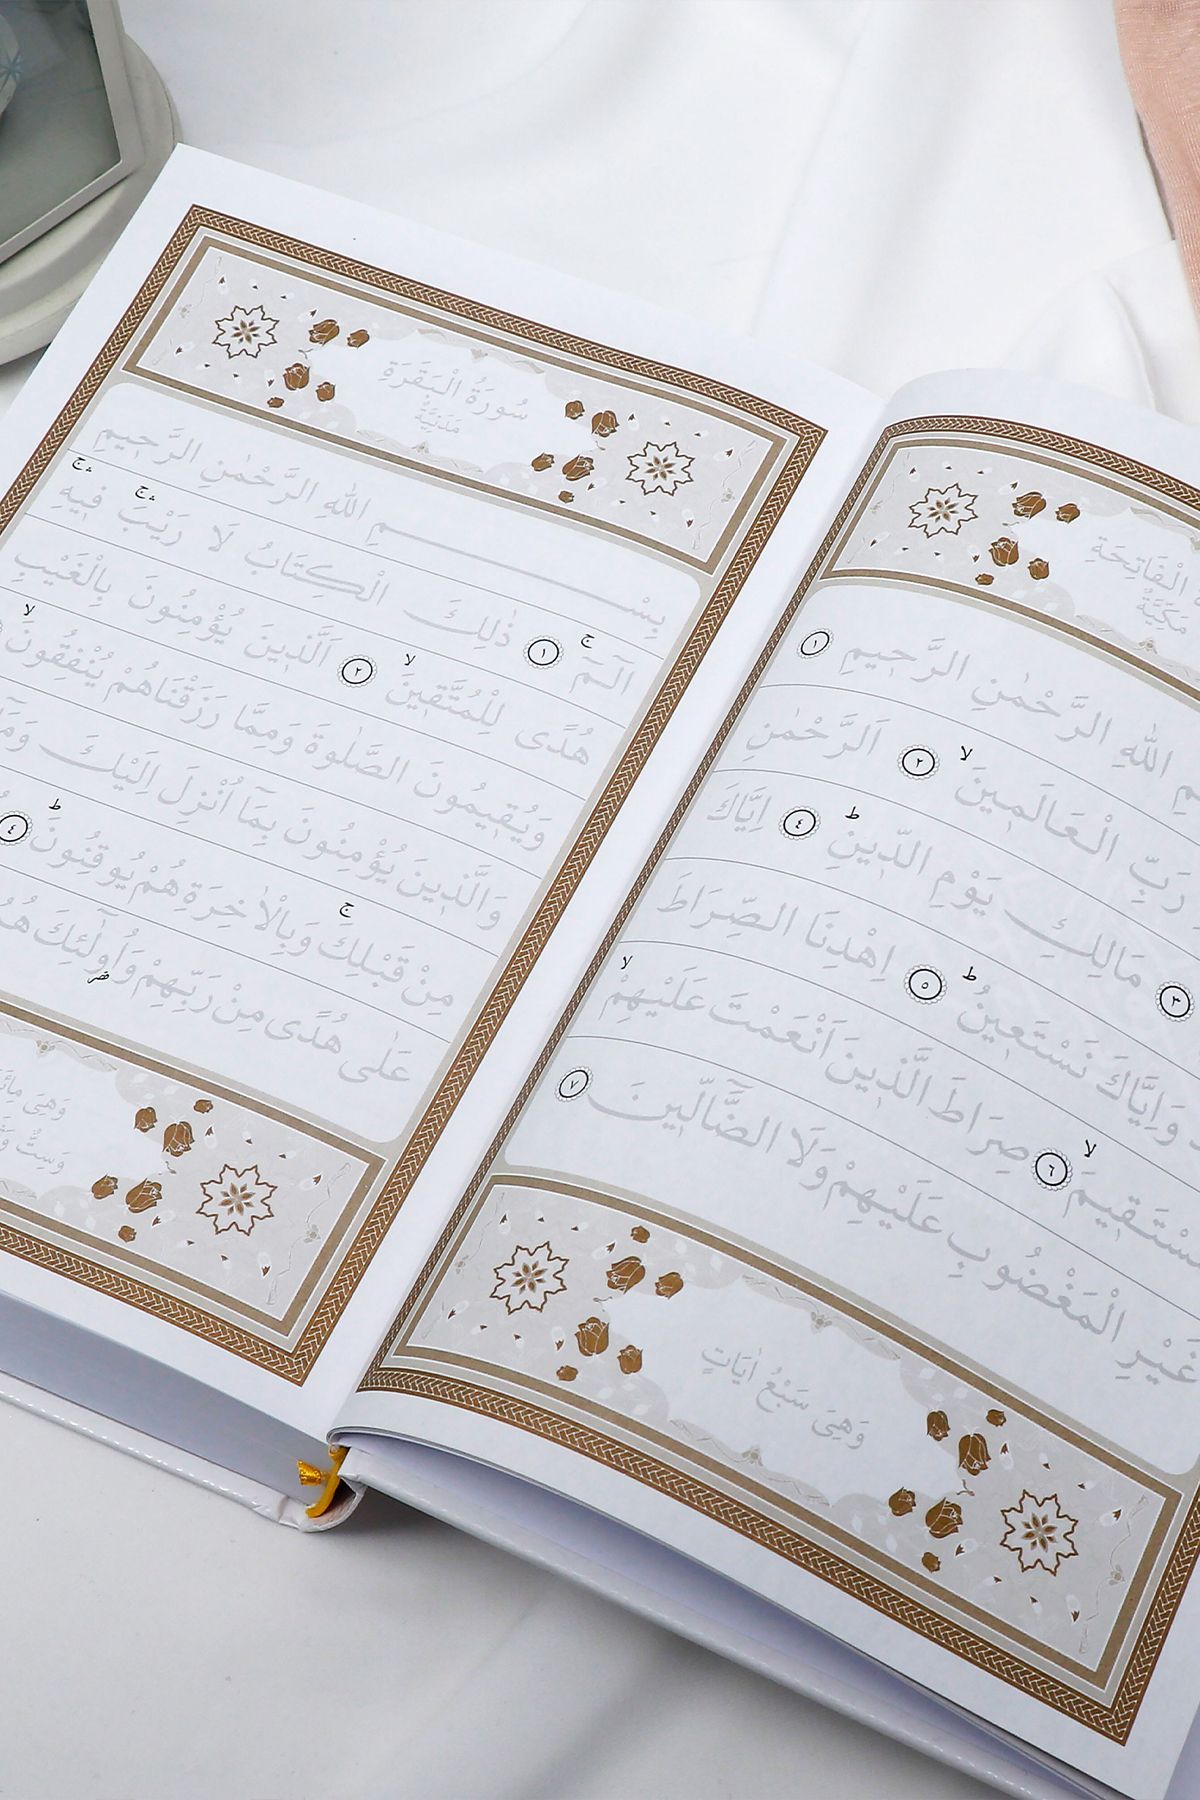 الْفَاتِحَةِ
مَكِّيَّةٌ
اللّٰهِ الرَّحْمٰنِ الرَّحٖيمِ ١
رَبِّ الْعَالَمٖينَ ٢ اَلرَّحْمٰنِ
٣ مَالِكِ يَوْمِ الدّٖينِ ٤ اِيَّاكَ
وَاِيَّاكَ نَسْتَعٖينُ ٥ اِهْدِنَا الصِّرَاطَ
٦ صِرَاطَ الَّذٖينَ اَنْعَمْتَ عَلَيْهِمْ
غَيْرِ الْمَغْضُوبِ عَلَيْهِمْ وَلَا الضَّٓالّٖينَ ٧
وَهِىَ سَبْعُ اٰيَاتٍ
سُورَةُ الْبَقَرَةِ
مَدَنِيَّةٌ
بِسْمِ اللّٰهِ الرَّحْمٰنِ الرَّحٖيمِ
الٓمٓ ١ ذٰلِكَ الْكِتَابُ لَا رَيْبَ فٖيهِ
هُدًى لِلْمُتَّقٖينَ ٢ اَلَّذٖينَ يُؤْمِنُونَ بِالْغَيْبِ
وَيُقٖيمُونَ الصَّلٰوةَ وَمِمَّا رَزَقْنَاهُمْ يُنْفِقُونَ
وَالَّذٖينَ يُؤْمِنُونَ بِمَٓا اُنْزِلَ اِلَيْكَ وَمَٓا
مِنْ قَبْلِكَ وَبِالْاٰخِرَةِ هُمْ يُوقِنُونَ ٤
عَلٰى هُدًى مِنْ رَبِّهِمْ وَاُولٰٓئِكَ
وَهِىَ